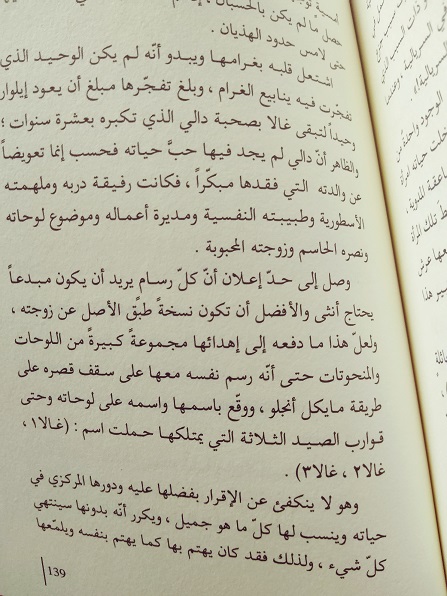 حصل ما لم يكن بالحسبان ،
حتى لامس حدود الهذيان .
اشتعل قلبه بغرامها ويبدو أنّه لم يكن الوحيد الذي
تفجّرت فيه ينابيع الغرام ، وبلغ تفجّرها مبلغ أن يعود إيلوار
وحيداً لتبقى غالا بصحبة دالي الذي تكبره بعشرة سنوات ؛
والظاهر أنّ دالي لم يجد فيها حبَّ حياته فحسب إنما تعويضاً
عن والدته التي فقدها مبكّراً ، فكانت رفيقة دربه وملهمته
الأسطورية وطبيبته النفسية ومديرة أعماله وموضوع لوحاته
ونصره الحاسم وزوجته المحبوبة .
وصل إلى حدّ إعلان أنّ كلّ رسام يريد أن يكون مبدعاً
يحتاج أنثى والأفضل أن تكون نسخةً طبقَ الأصل عن زوجته ،
ولعلّ هذا ما دفعه إلى إهدائها مجموعةً كبيرةً من اللوحات
والمنحوتات حتى أنّه رسم نفسه معها على سقف قصره على
طريقة مايكل أنجلو ، ووقّع باسمها واسمه على لوحاته وحتى
قوارب الصيد الثلاثة التي يمتلكها حملت اسم : (غالا١ ،
غالا٢ ، غالا٣) .
وهو لا ينكفئ عن الإقرار بفضلها عليه ودورها المركزي في
حياته وينسب لها كلّ ما هو جميل ، ويكرر أنّه بدونها سينتهي
كلّ شيء ، ولذلك فقد كان يهتم بها كما يهتم بنفسه ويلمّعها
139